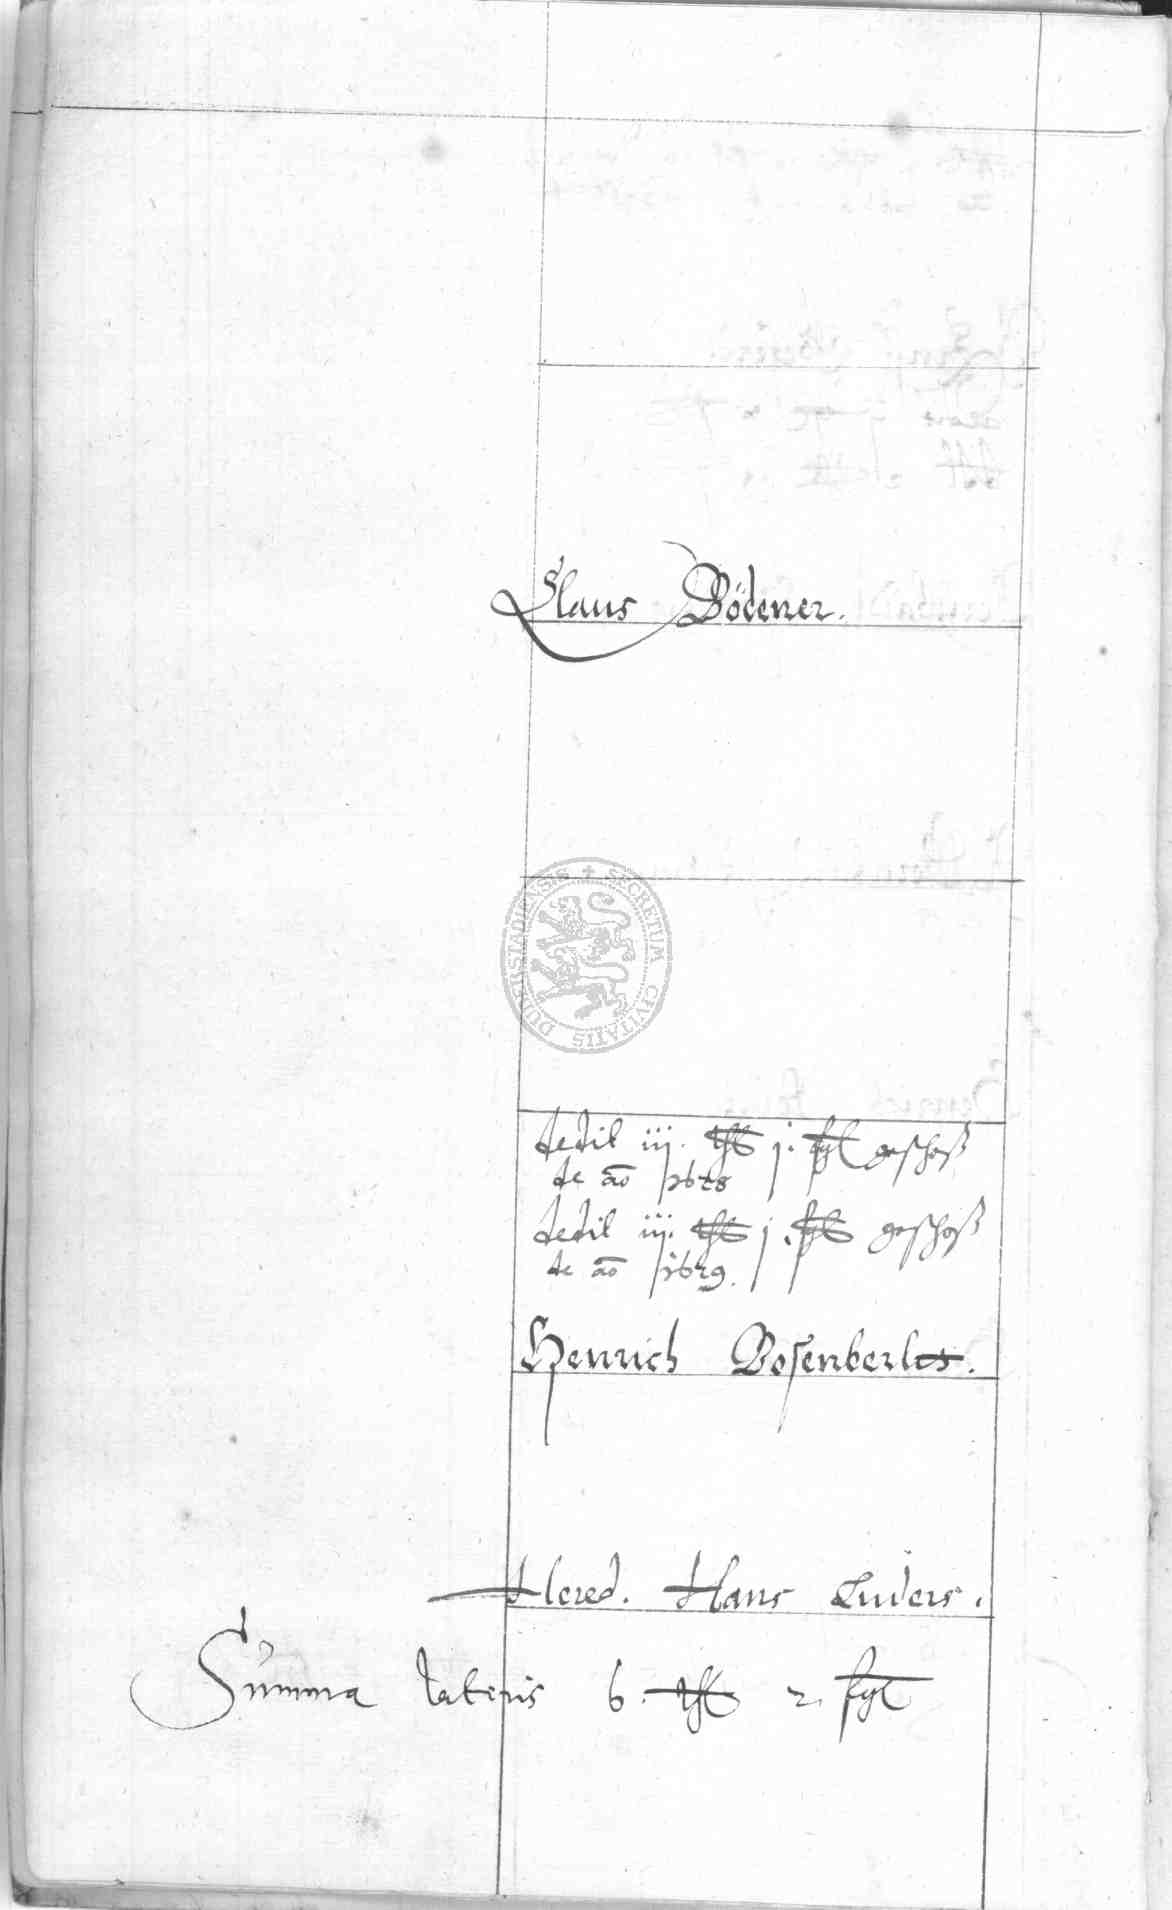 Claus Bödener.
SECRETUM CIVITATIS DUDERSTADIENSIS
dedit iij. thl j. fgl geschoß
de ao 1628
dedit iij. thl j. fgl geschoß
de ao 1629.
Henrich Bosenberles.
Hered. Hans Luders.
Summa lateris 6. thl 2. fgl